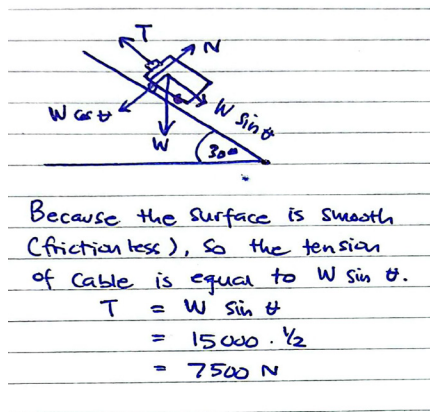 T
N
W cos θ
W sin θ
W
30°
Because the surface is smooth
(frictionless), so the tension
of cable is equal to W sin θ.
T = W sin θ
= 15000 . 1/2
= 7500 N